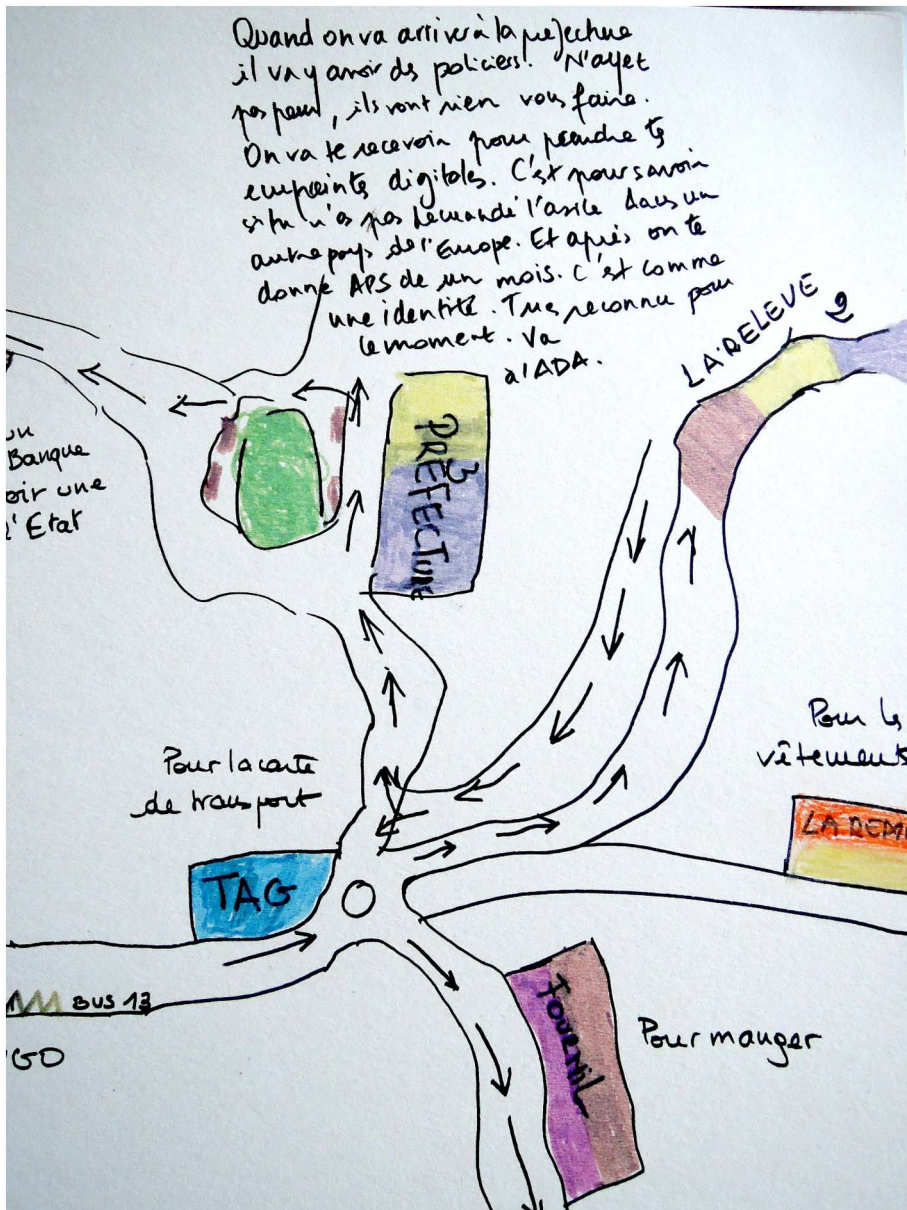 Quand on va arriver à la préfecture
il va y avoir des policiers. N'ayet
pas peur, ils vont rien vous faire.
On va te recevoir pour prendre ts
empreints digitales. C'est pour savoir
si tu n'as pas demandé l'asile dans un
autre pays de l'Europe. Et après on te
donne APS de un mois. C'est comme
une identité. Tu es reconnu pour
le moment. Va
à l'ADA.
LA RELEVE 2
PREFECTURE
3
un
Banque
oir une
d'Etat
Pour la carte
de transport
TAG
Pour ls
vêtements
LA REMI
BUS 13
GO
FOURNIL
Pour manger